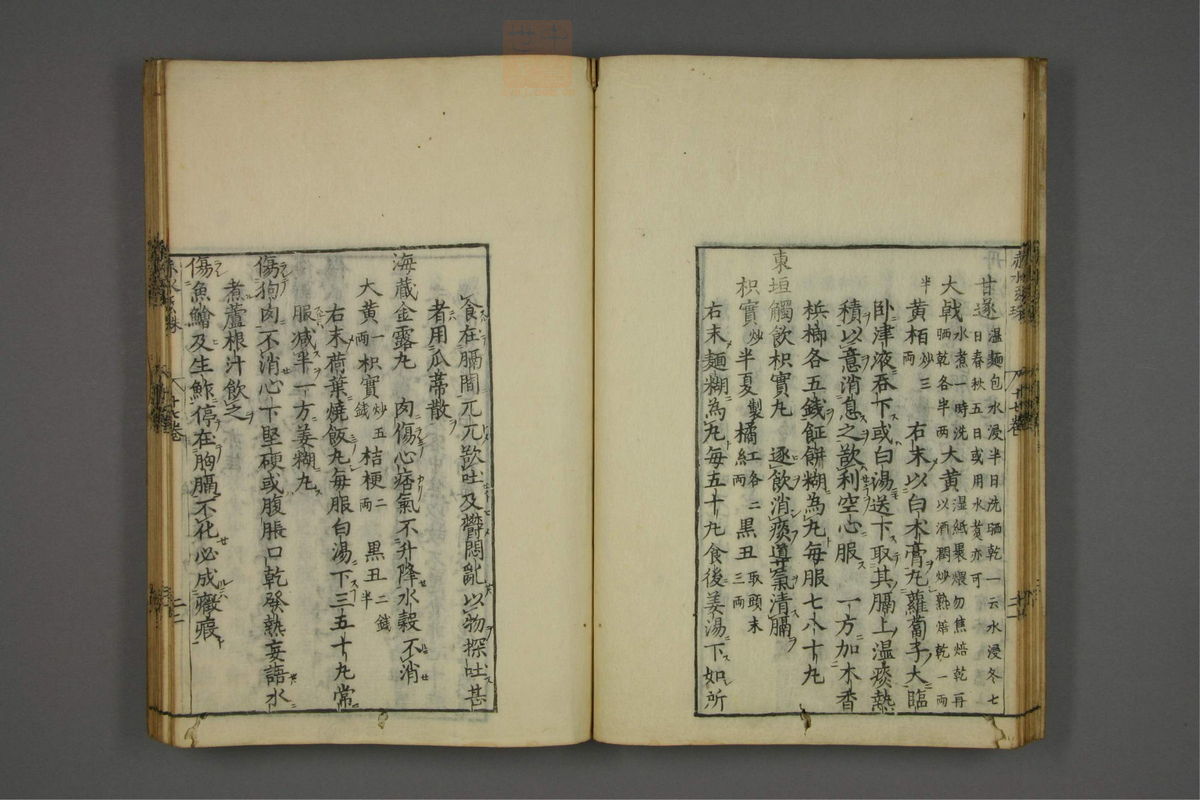 甘遂温麺包水浸半日洗晒乾一云水浸冬七
日春秋五日或用水煮亦可
大戟水煮一時洗晒乾各半两大黄湿紙裹煨勿焦焙乾再以酒潤炒熟焙乾一两
半黄栢炒三两右末以白术膏丸蘿蔔子大臨
卧津液吞下或白湯送下取其膈上温痰熱
積以意消息之欲利空心服　一方加木香
梹榔各五錢飣餅糊為丸每服七八十丸
東垣觸飲枳實丸　逐飲消痰導氣清膈
枳實炒半夏製橘紅各二两黒丑取頭末三两
右末麵糊為丸每五十丸食後姜湯下如所
赤水玄珠　十七卷
食在膈間兀兀欲吐及鬱悶亂以物探吐甚
者用瓜蒂散
海蔵金露丸　肉傷心痞氣不升降水穀不消
大黄一两枳實炒五錢桔梗二两黒丑二錢半
右末荷葉燒飯丸每服白湯下三五十丸常
服减半一方姜糊丸
傷狗肉不消心下堅硬或腹脹口乾發熱妄語水
煮蘆根汁飲之
傷魚鱠及生鮓停在胸膈不化必成癥瘕
赤水玄珠　十七卷